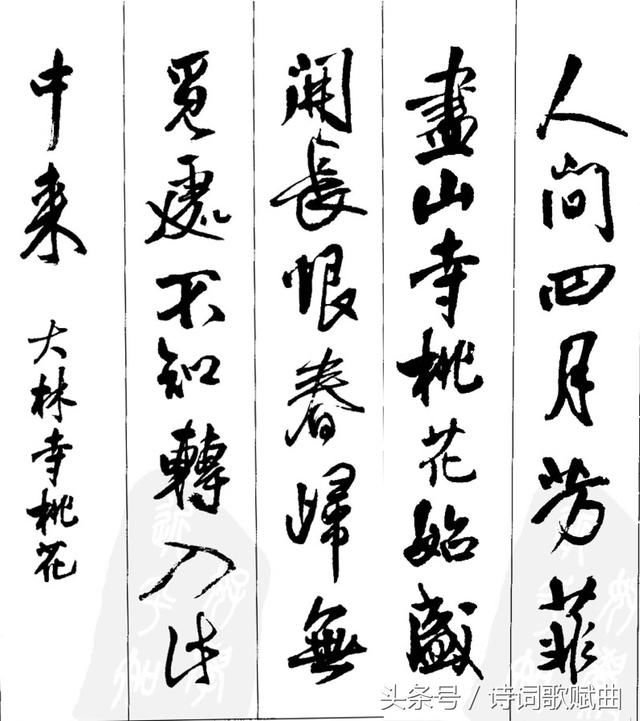 人间四月芳菲
盡山寺桃花始盛
開長恨春歸無
覓處不知轉入此
中来
大林寺桃花
头条号／诗词歌赋曲